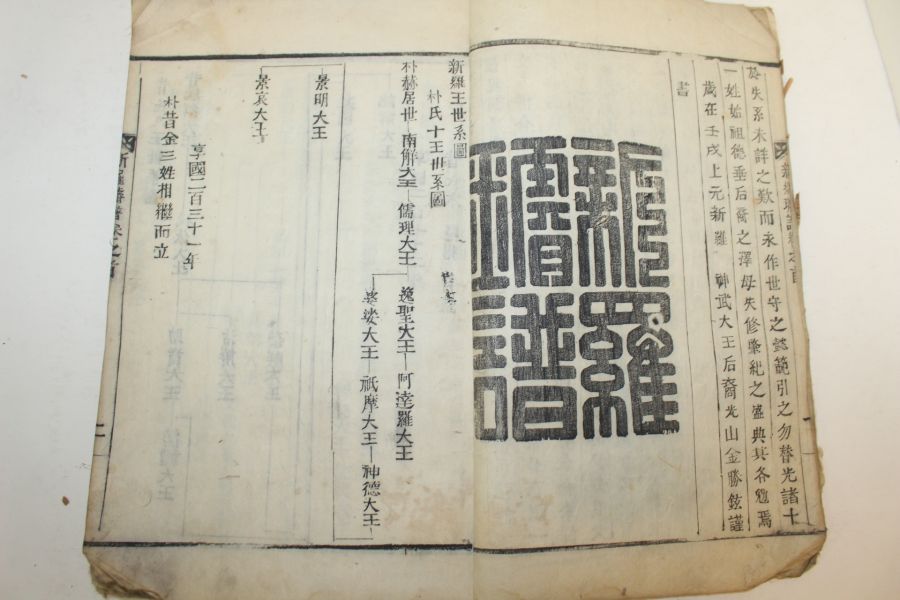 新羅璿譜卷之首
失系未詳之歎而永作世守之懿範引之勿替光諸十
一姓始祖德垂后裔之澤毋失修紀之盛典其各勉焉
歲在壬戌上元新羅 神武大王后裔光山金勝鉉謹
書
新羅
璿譜
新羅王世系圖
朴氏十王世系圖
朴赫居世 南解大王 儒理大王 逸聖大王 阿達羅大王
婆娑大王 祇摩大王 神德大王
景明大王
景哀大王
享國二百三十一年
朴昔金三姓相繼而立
新羅璿譜卷之首
二